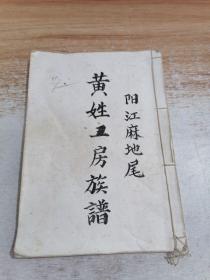 阳江麻地尾
黄姓五房族譜